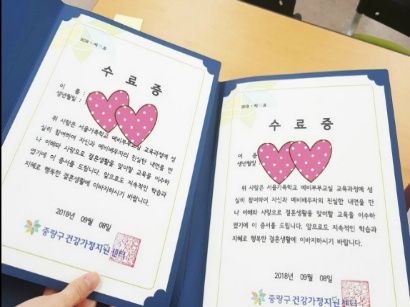 수 료 증
이 름 :
생년월일 :
위 사람은 서울가족학교 예비부부교실 교육과정에 성
실히 참여하여 자신과 예비배우자의 진실한 내면을 만
나 이해와 사랑으로 결혼생활을 맞이할 교육을 이수하
였기에 이 증서를 드립니다. 앞으로도 지속적인 학습과
지혜로 행복한 결혼생활에 이바지하시기 바랍니다.
2018년 09월 08일
중랑구 건강가정지원센터
수 료 증
이 름
생년월일
위 사람은 서울가족학교 예비부부교실 교육과정에 성
실히 참여하여 자신과 예비배우자의 진실한 내면을 만
나 이해와 사랑으로 결혼생활을 맞이할 교육을 이수하
였기에 이 증서를 드립니다. 앞으로도 지속적인 학습과
지혜로 행복한 결혼생활에 이바지하시기 바랍니다.
2018년 09월 08일
중랑구 건강가정지원센터